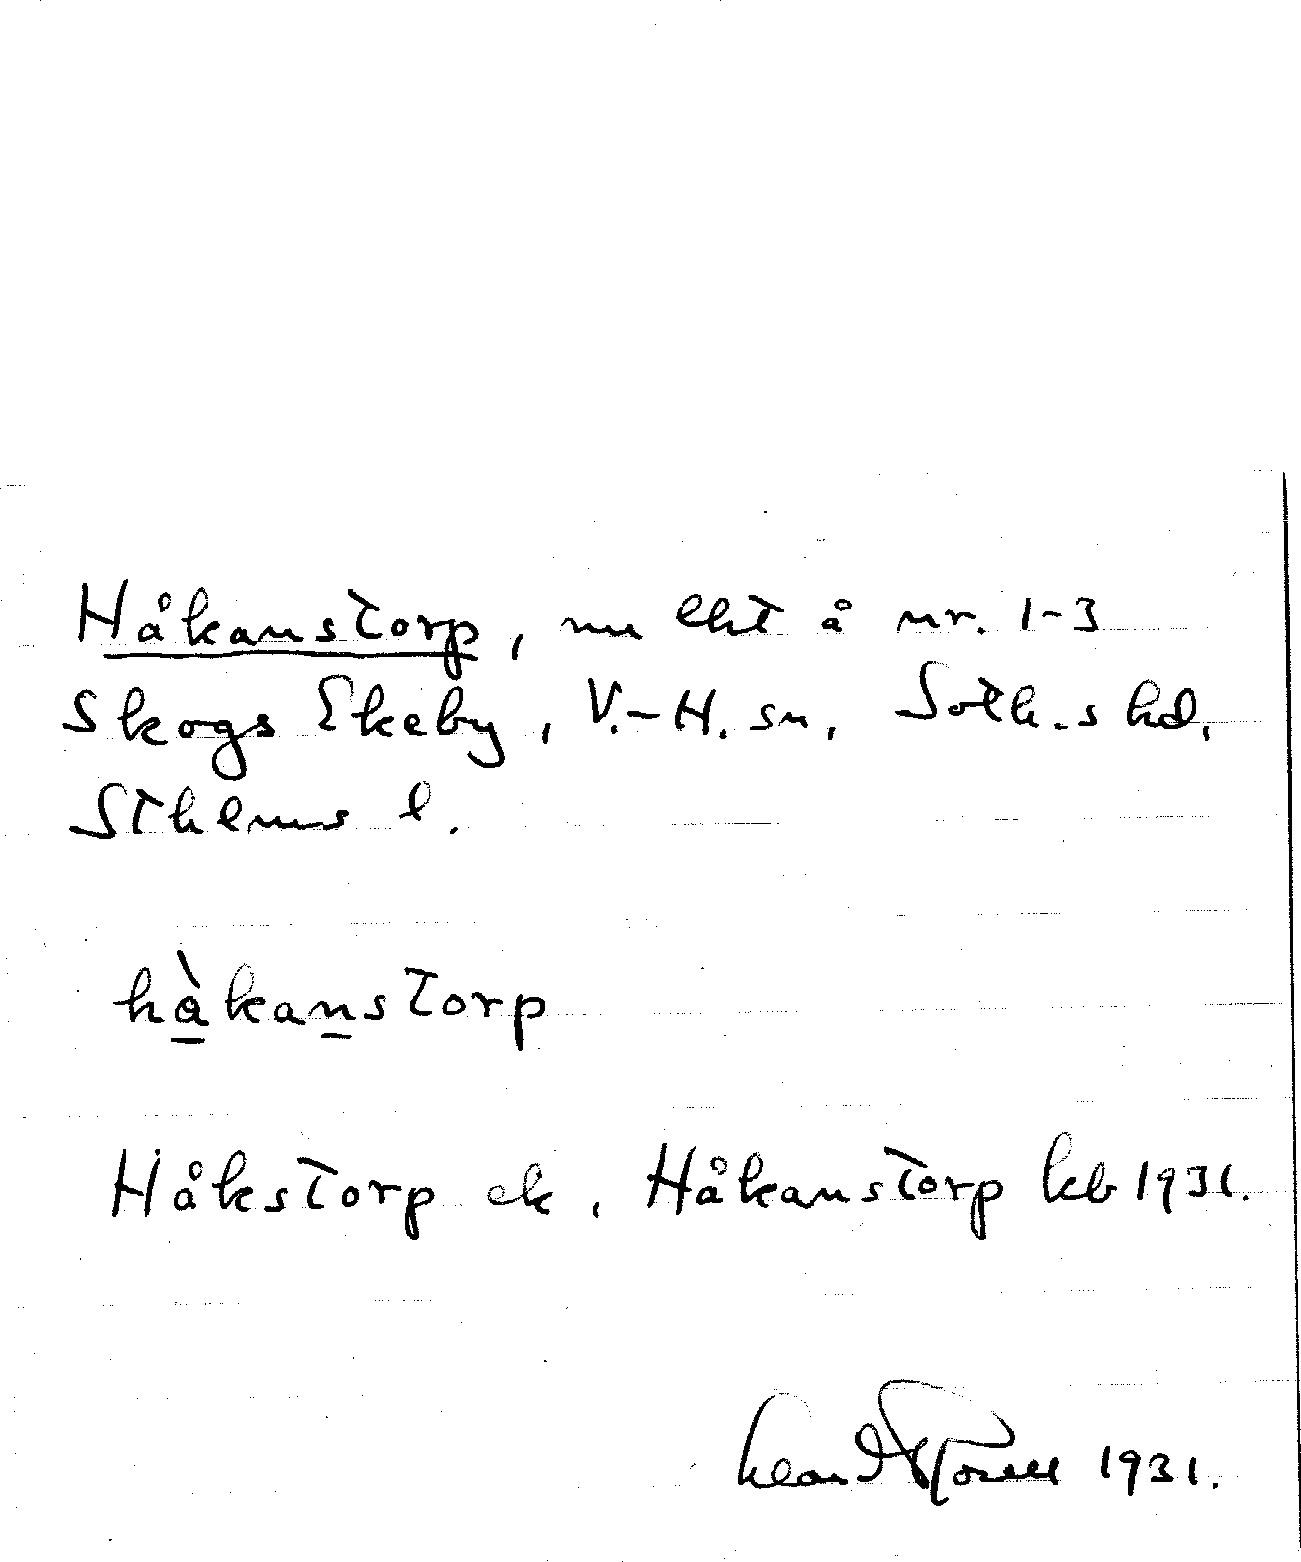 Håkanstorp, nu lht å nr. 1-3
Skogs Ekeby, V.-H. sn, Soth.s hd,
Sthlms l.
hàkanstorp
Håkstorp ek, Håkanstorp kb 1931.
1931.